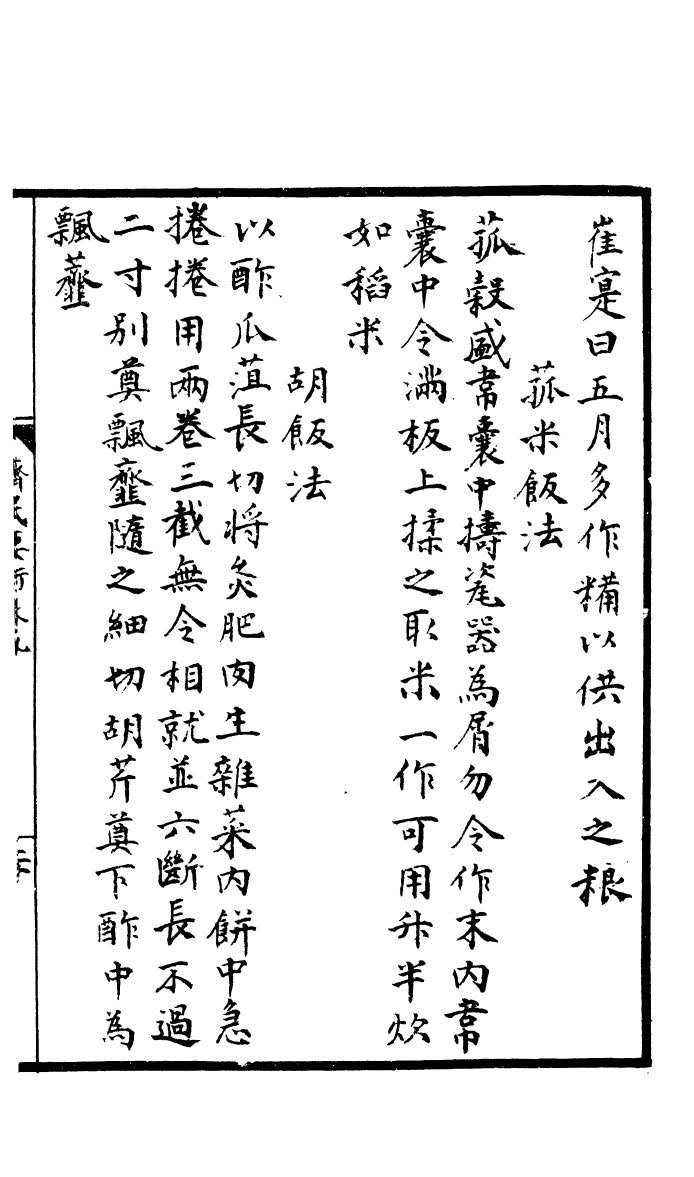 崔寔曰五月多作糒以供出入之粮
菰米飯法
菰穀盛韋囊中擣瓷器為屑勿令作末內韋
囊中令滿板上揉之取米一作可用升半炊
如稻米
胡飯法
以酢瓜菹長切將炙肥肉生雜菜內餅中急
捲捲用兩卷三截無令相就並六斷長不過
二寸別奠飄虀隨之細切胡芹奠下酢中為
飄虀
齊民要術卷九